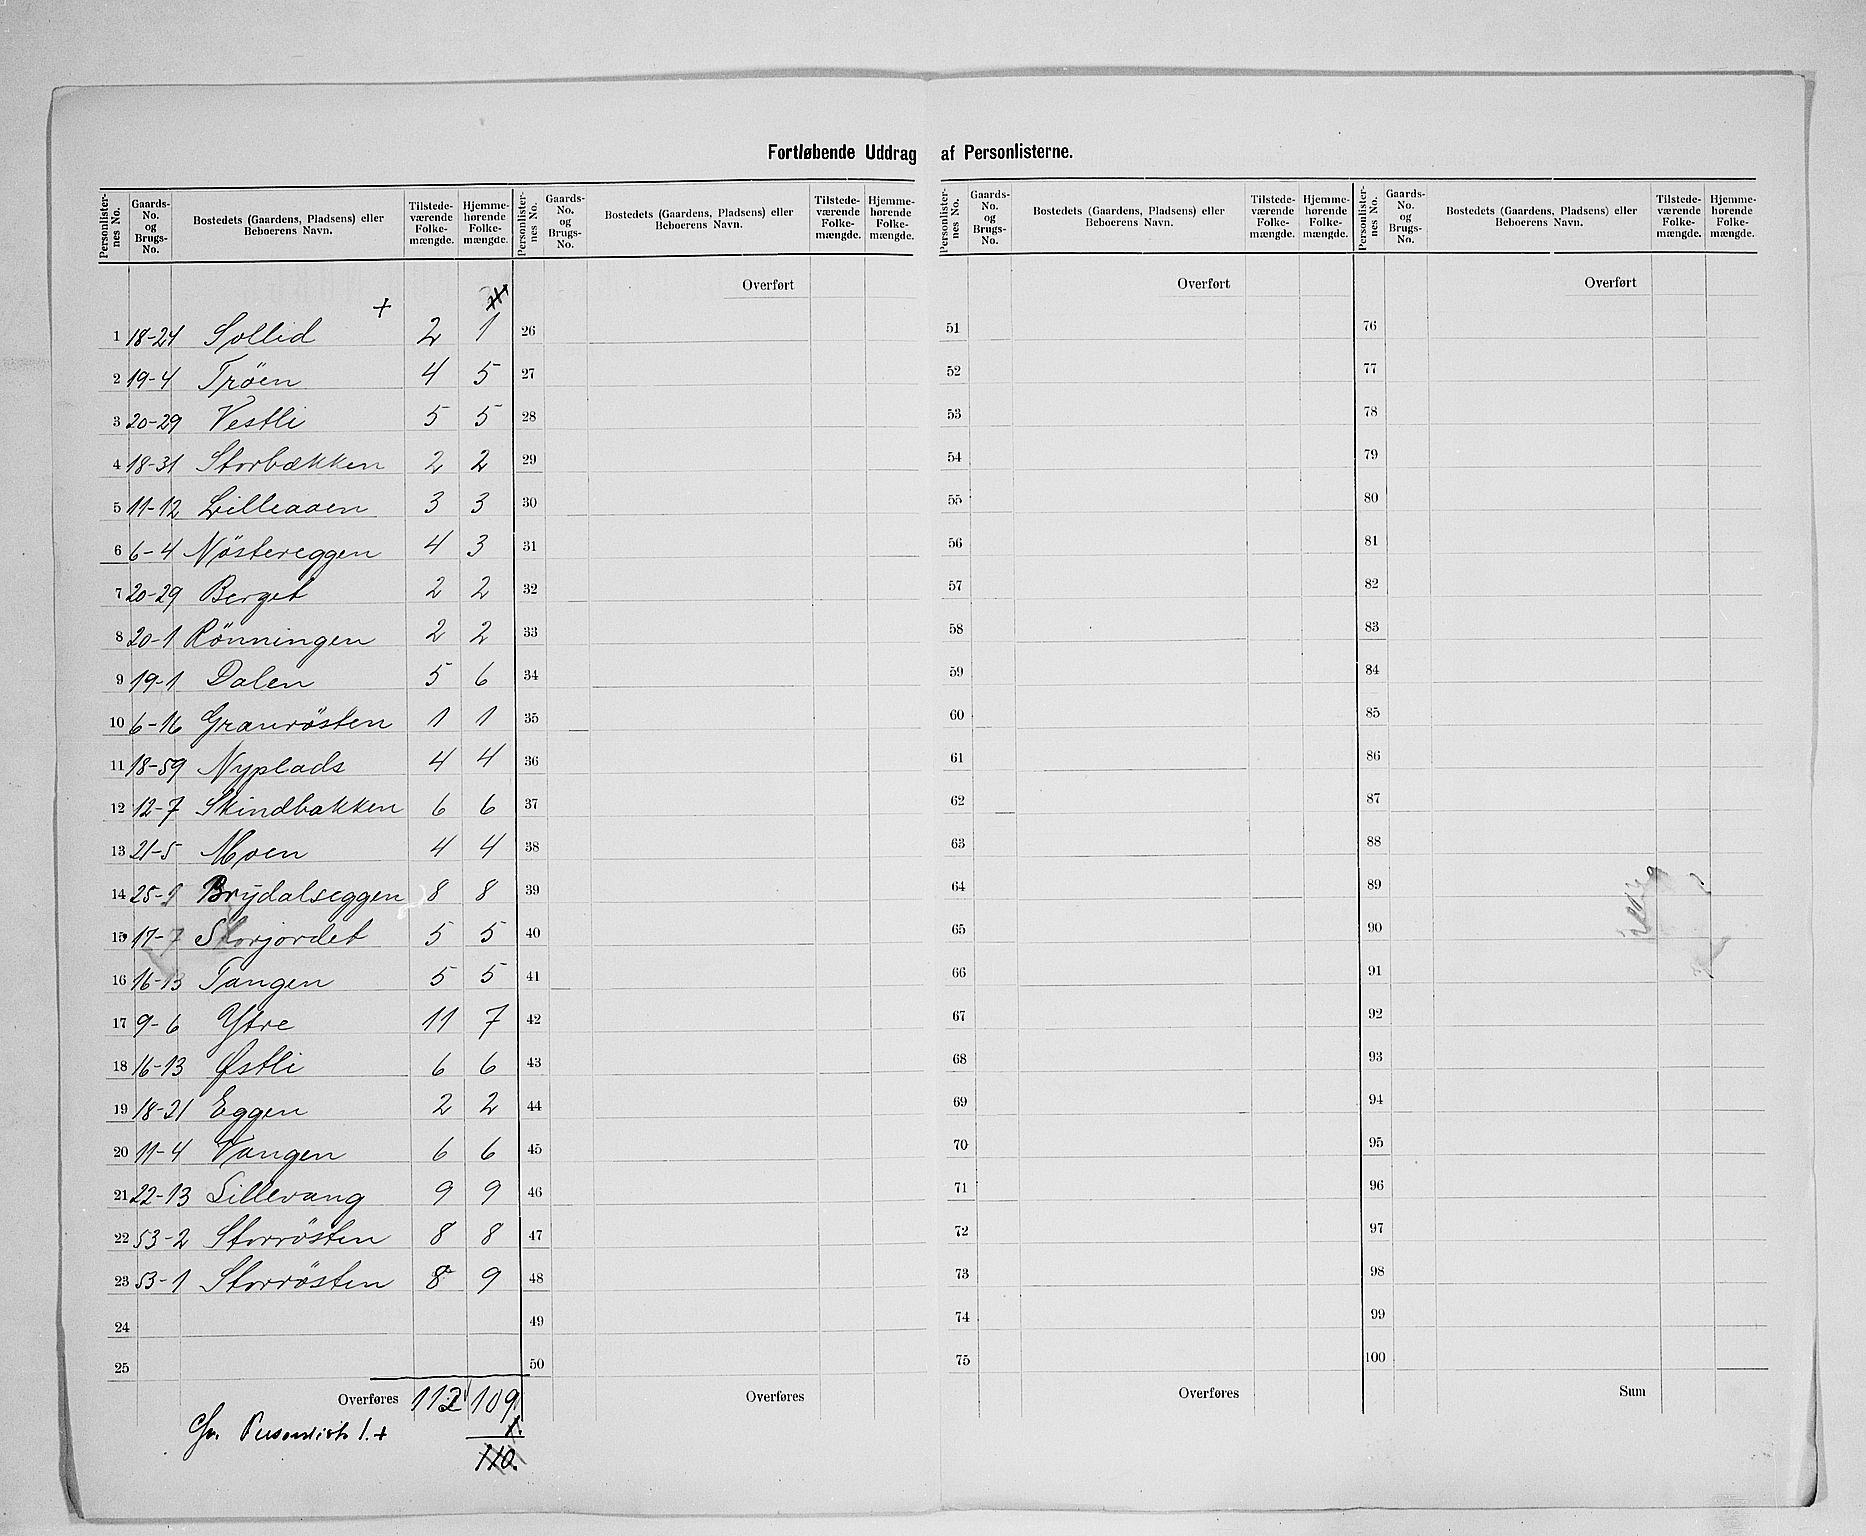 Fortløbende Uddrag af Personlisterne.
Personlisternes No. | Gaards-No. og Brugs-No. | Bostedets (Gaardens, Pladsens) eller Beboerens Navn. | Tilstedeværende Folkemængde. | Hjemmehørende Folkemængde.
Personlisternes No. | Gaards-No. og Brugs-No. | Bostedets (Gaardens, Pladsens) eller Beboerens Navn. | Tilstedeværende Folkemængde. | Hjemmehørende Folkemængde.
Personlisternes No. | Gaards-No. og Brugs-No. | Bostedets (Gaardens, Pladsens) eller Beboerens Navn. | Tilstedeværende Folkemængde. | Hjemmehørende Folkemængde.
Personlisternes No. | Gaards-No. og Brugs-No. | Bostedets (Gaardens, Pladsens) eller Beboerens Navn. | Tilstedeværende Folkemængde. | Hjemmehørende Folkemængde.
Overført Overført Overført
+
1 18-24 Sollid 2 1 26 51 76
2 19-4 Tröen 4 5 27 52 77
3 20-29 Vestli 5 5 28 53 78
4 18-31 Storbækken 2 2 29 54 79
5 11-12 Lilleaaen 3 3 30 55 80
6 6-4 Nöstereggen 4 3 31 56 81
7 20-29 Berget 2 2 32 57 82
8 20-1 Rönningen 2 2 33 58 83
9 19-1 Dalen 5 6 34 59 84
10 6-16 Granrösten 1 1 35 60 85
11 18-59 Nyplads 4 4 36 61 86
12 12-7 Skindbakken 6 6 37 62 87
13 21-5 Moen 4 4 38 63 88
14 25-1 Brydalseggen 8 8 39 64 89
15 17-7 Storjordet 5 5 40 65 90
16 16-13 Tangen 5 5 41 66 91
17 9-6 Ytre 11 7 42 67 92
18 16-13 Østli 6 6 43 68 93
19 18-21 Eggen 2 2 44 69 94
20 11-4 Vangen 6 6 45 70 95
21 22-13 Lillevang 9 9 46 71 96
22 53-2 Storrösten 8 8 47 72 97
23 53-1 Storrösten 8 9 48 73 98
24 49 74 99
25 50 75 100
Overføres 112 109 Overføres Overføres Sum
Personliste 1. + 1.
110.